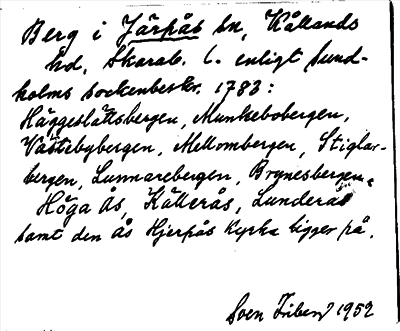 Berg i Järpås sn, Kållands
hd, Skarab. l. enligt Sund-
holms sockenbeskr. 1783:
Häggeslättsbergen, Munkebobergen,
Västebybergen, Mellombergen, Stiglar-
bergen, Lunnarebergen, Brynesbergen,
Höga Ås, Källerås, Lunderås
samt den ås Hjerpås kyrka ligger på.
Sven Friberg 1952